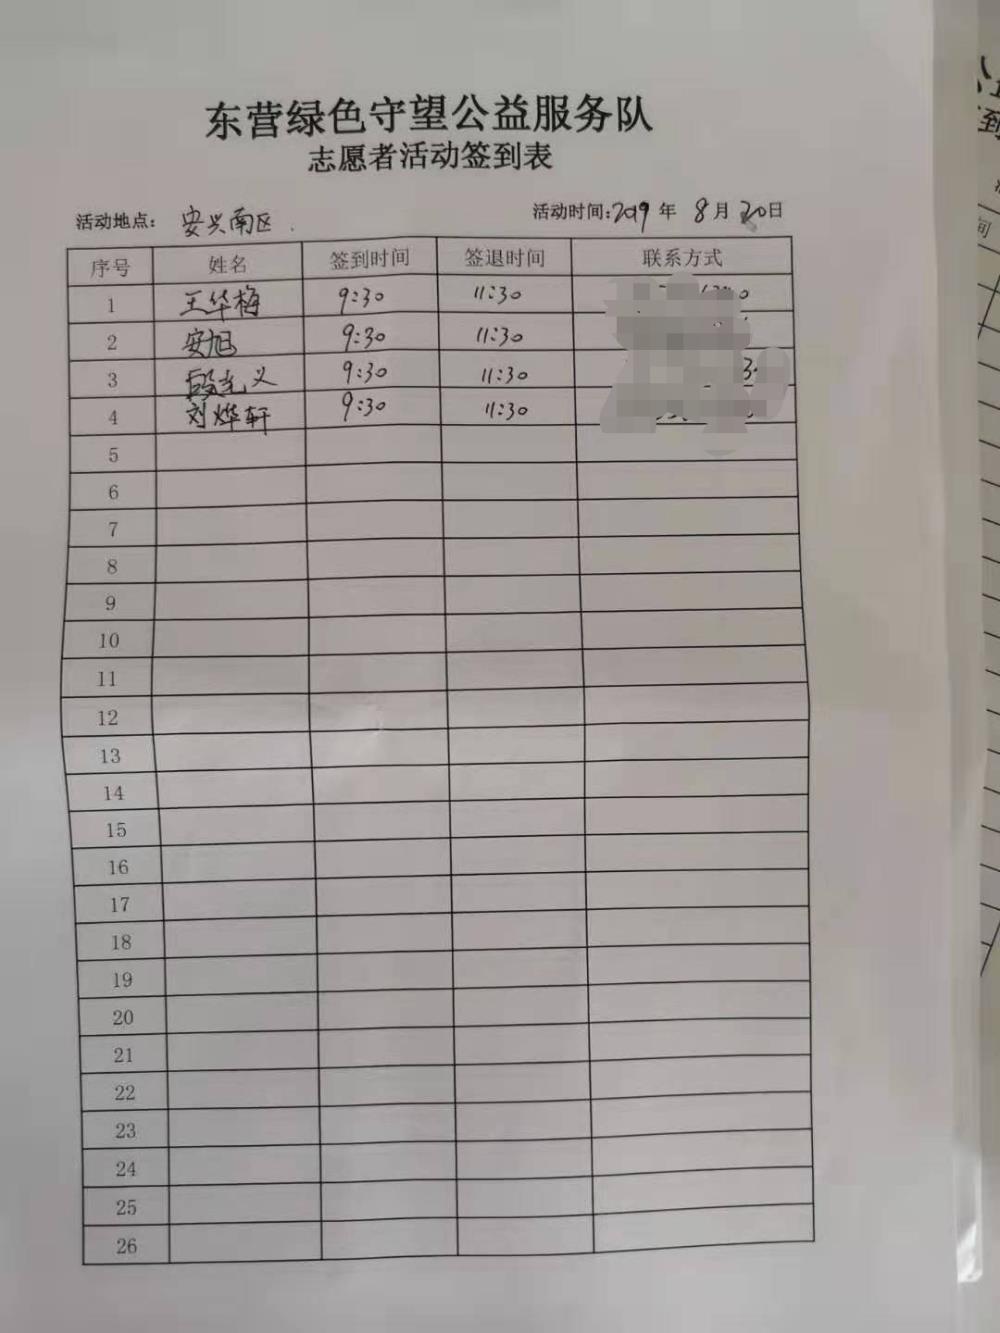 东营绿色守望公益服务队
志愿者活动签到表
活动地点: 安兴南区 活动时间:2019 年 8 月 20 日
序号 姓名 签到时间 签退时间 联系方式
1 王华梅 9:30 11:30
2 安旭 9:30 11:30
3 段光义 9:30 11:30
4 刘烨轩 9:30 11:30
5
6
7
8
9
10
11
12
13
14
15
16
17
18
19
20
21
22
23
24
25
26